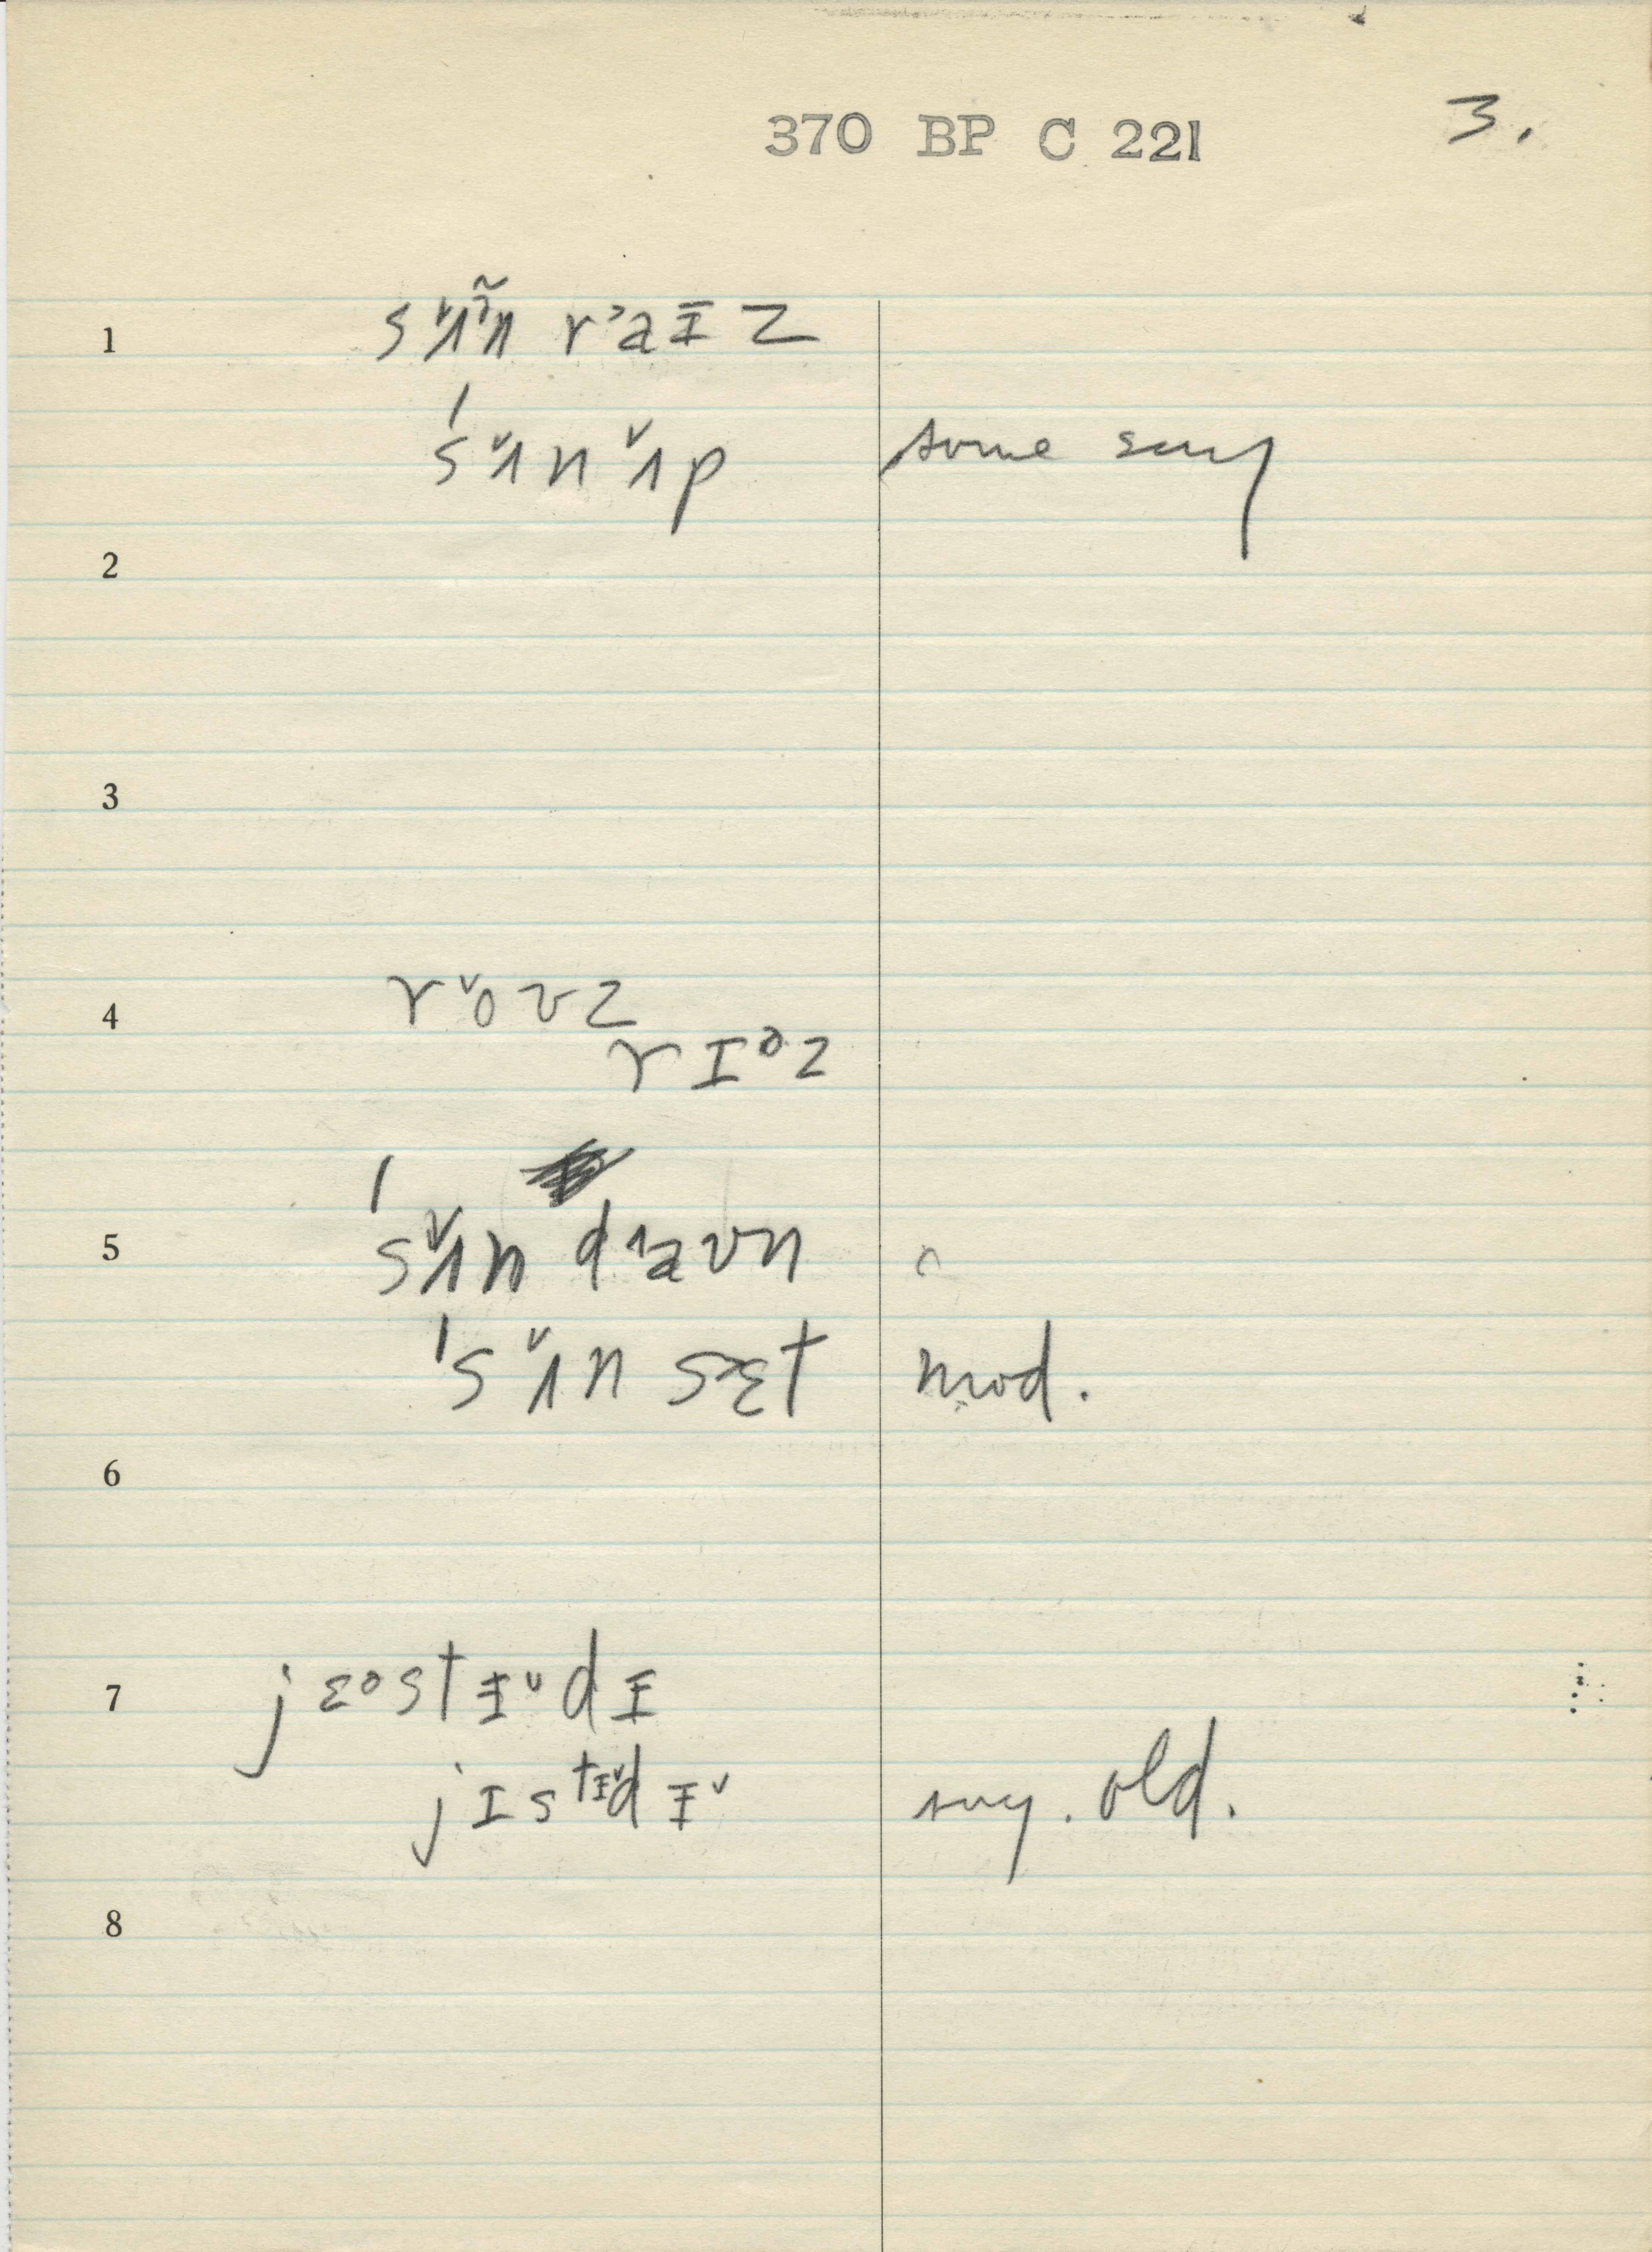 370 BP C 221
3.
1 sʌ˅ɜ̃n rᵓaɪz
ˈsʌ˅nʌ˅p some say
2
3
4 ro˅ʊz
rɪᵊz
5 ˈsʌ˅n daʊn
ˈsʌ˅n sɛt mod.
6
7 jɛᵊstɪ˅dɪ
jɪstɪ˅dɪ˅ sug. old.
8